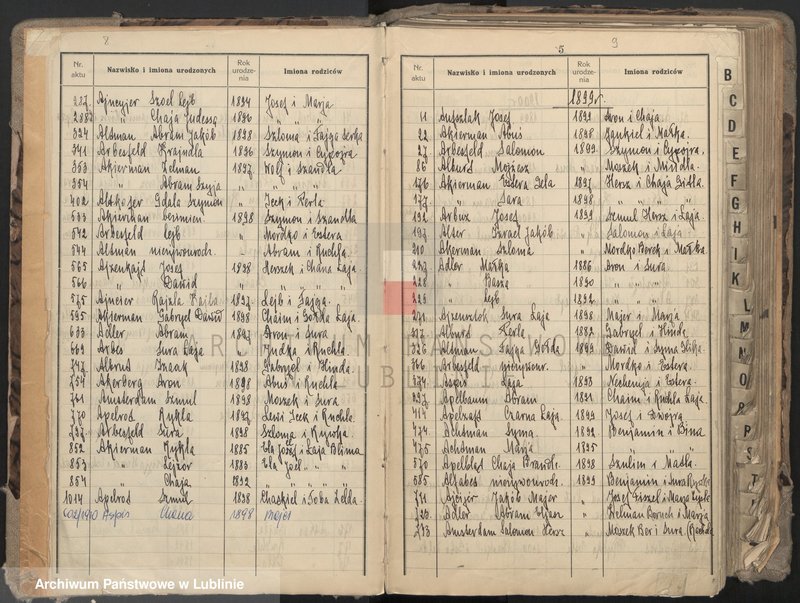 8
Nr. aktu Nazwisko i imiona urodzonych Rok urodze-nia Imiona rodziców
237 Ajneyjer Szoel lejb 1894 Josef i Marja
288 " Chaja Judessa 1896 " "
324 Aldman Abram Jakób 1898 Szloma i Fajga Serka
341 Arbesfeld Frajndla 1896 Szymon i Cypojra
353 Akierman Zelman 1897 Wolf i Szandla
354 " Abram Szyja " " "
402 Alskoser Gdala Szymon " Icek i Kerla
533 Akierman beniamin 1898 Szymon i Szandla
542 Arbesfeld lejb " Mordko i Estera
544 Altman nienywourodz. - Abram i Ruchla
565 Ajzenkajt Josef 1898 Herszek i Chana Łaja
566 " Dawid " " "
575 Ajneier Rajzla Fajba 1897 Lejb i Fajga
595 Akierman Gabryel Dawid 1898 Chaim i Golda Łaja
633 Adler Abram 1897 Aron i Sura
669 Arbes Sura Łaja " Judka i Ruchla
747 Albrut Szaak 1898 Gabryel i Hinda
754 Akerberg Aron 1898 Abus i Ruchla
761 Amsterdam Szmul 1898 Moszek i Sura
770 Apelrod Rykla 1897 Lewi Icek i Ruchla
797 Arbesfeld Sura 1898 Szloma i Rywka
852 Akierman Jykla 1885 Ela Josef i Łaja Blima
853 " Lejzor 1883 Ela Joel " "
854 " Chaja 1892 " "
1014 Apelrod Szmul 1898 Chackiel i Toba Zelda
602/1910 Aspis Chana 1898 Majer
5
9
Nr. aktu Nazwisko i imiona urodzonych Rok urodze-nia Imiona rodziców
1899 r.
11 Antszlak Josef 1899 Aron i Chaja
22 Akierman Abuś 1898 Jankiel i Małka
27 Arbesfeld Salomon 1899 Szymon i Cypojra
86 Alburd Mojżesz " Moszek i Mindla
176 Akierman Estera Gela 1897 Hersz i Chaja Gitla
177 " Sara 1898 " " "
192 Arbuz Josef 1899 Szmul Hersz i Łaja
197 Alter Izrael Jakób " Salomon i Łaja
210 Akerman Szloma " Mordko Berek i Małka
227 Adler Małka 1886 Aron i Sura
228 " Basza 1890 " "
229 " lejb 1892 " "
271 Ajzenrolok Sura Łaja 1898 Majer i Marja
317 Alburd Kerla 1882 Gabryel i Hinda
326 Altman Fajga Golda 1899 Dawid i Syma Itka
366 Arbesfeld nienywour. " Mordko i Estera
374 Aspis Łaja 1898 Nechemja i Estera
397 Apelbaum Abram 1891 Chaim i Ruchla Łaja
414 Apelzaft Czarna Łaja 1899 Josef i Dwojra
474 Achtman Syma 1892 Benjamin i Bina
475 Achtman Marja 1895 " "
570 Apelblad Chaja Brandla 1898 Szulim i Madla
585 Alfabes nienywourodz. 1899 Benjamin i Sura Ryvka
711 Ajbizer Jakób Majer "
723 Adler Abram Eljasz " Helman Boruch i Marja
793 Amsterdam Salomon Hersz " Moszek Ber i Sura
B
C
D
E
F
G
H
I
K
L
M
N
O
P
R
S
T
ARCHIWUM PAŃSTWOWE
LUBLIN
Archiwum Państwowe w Lublinie